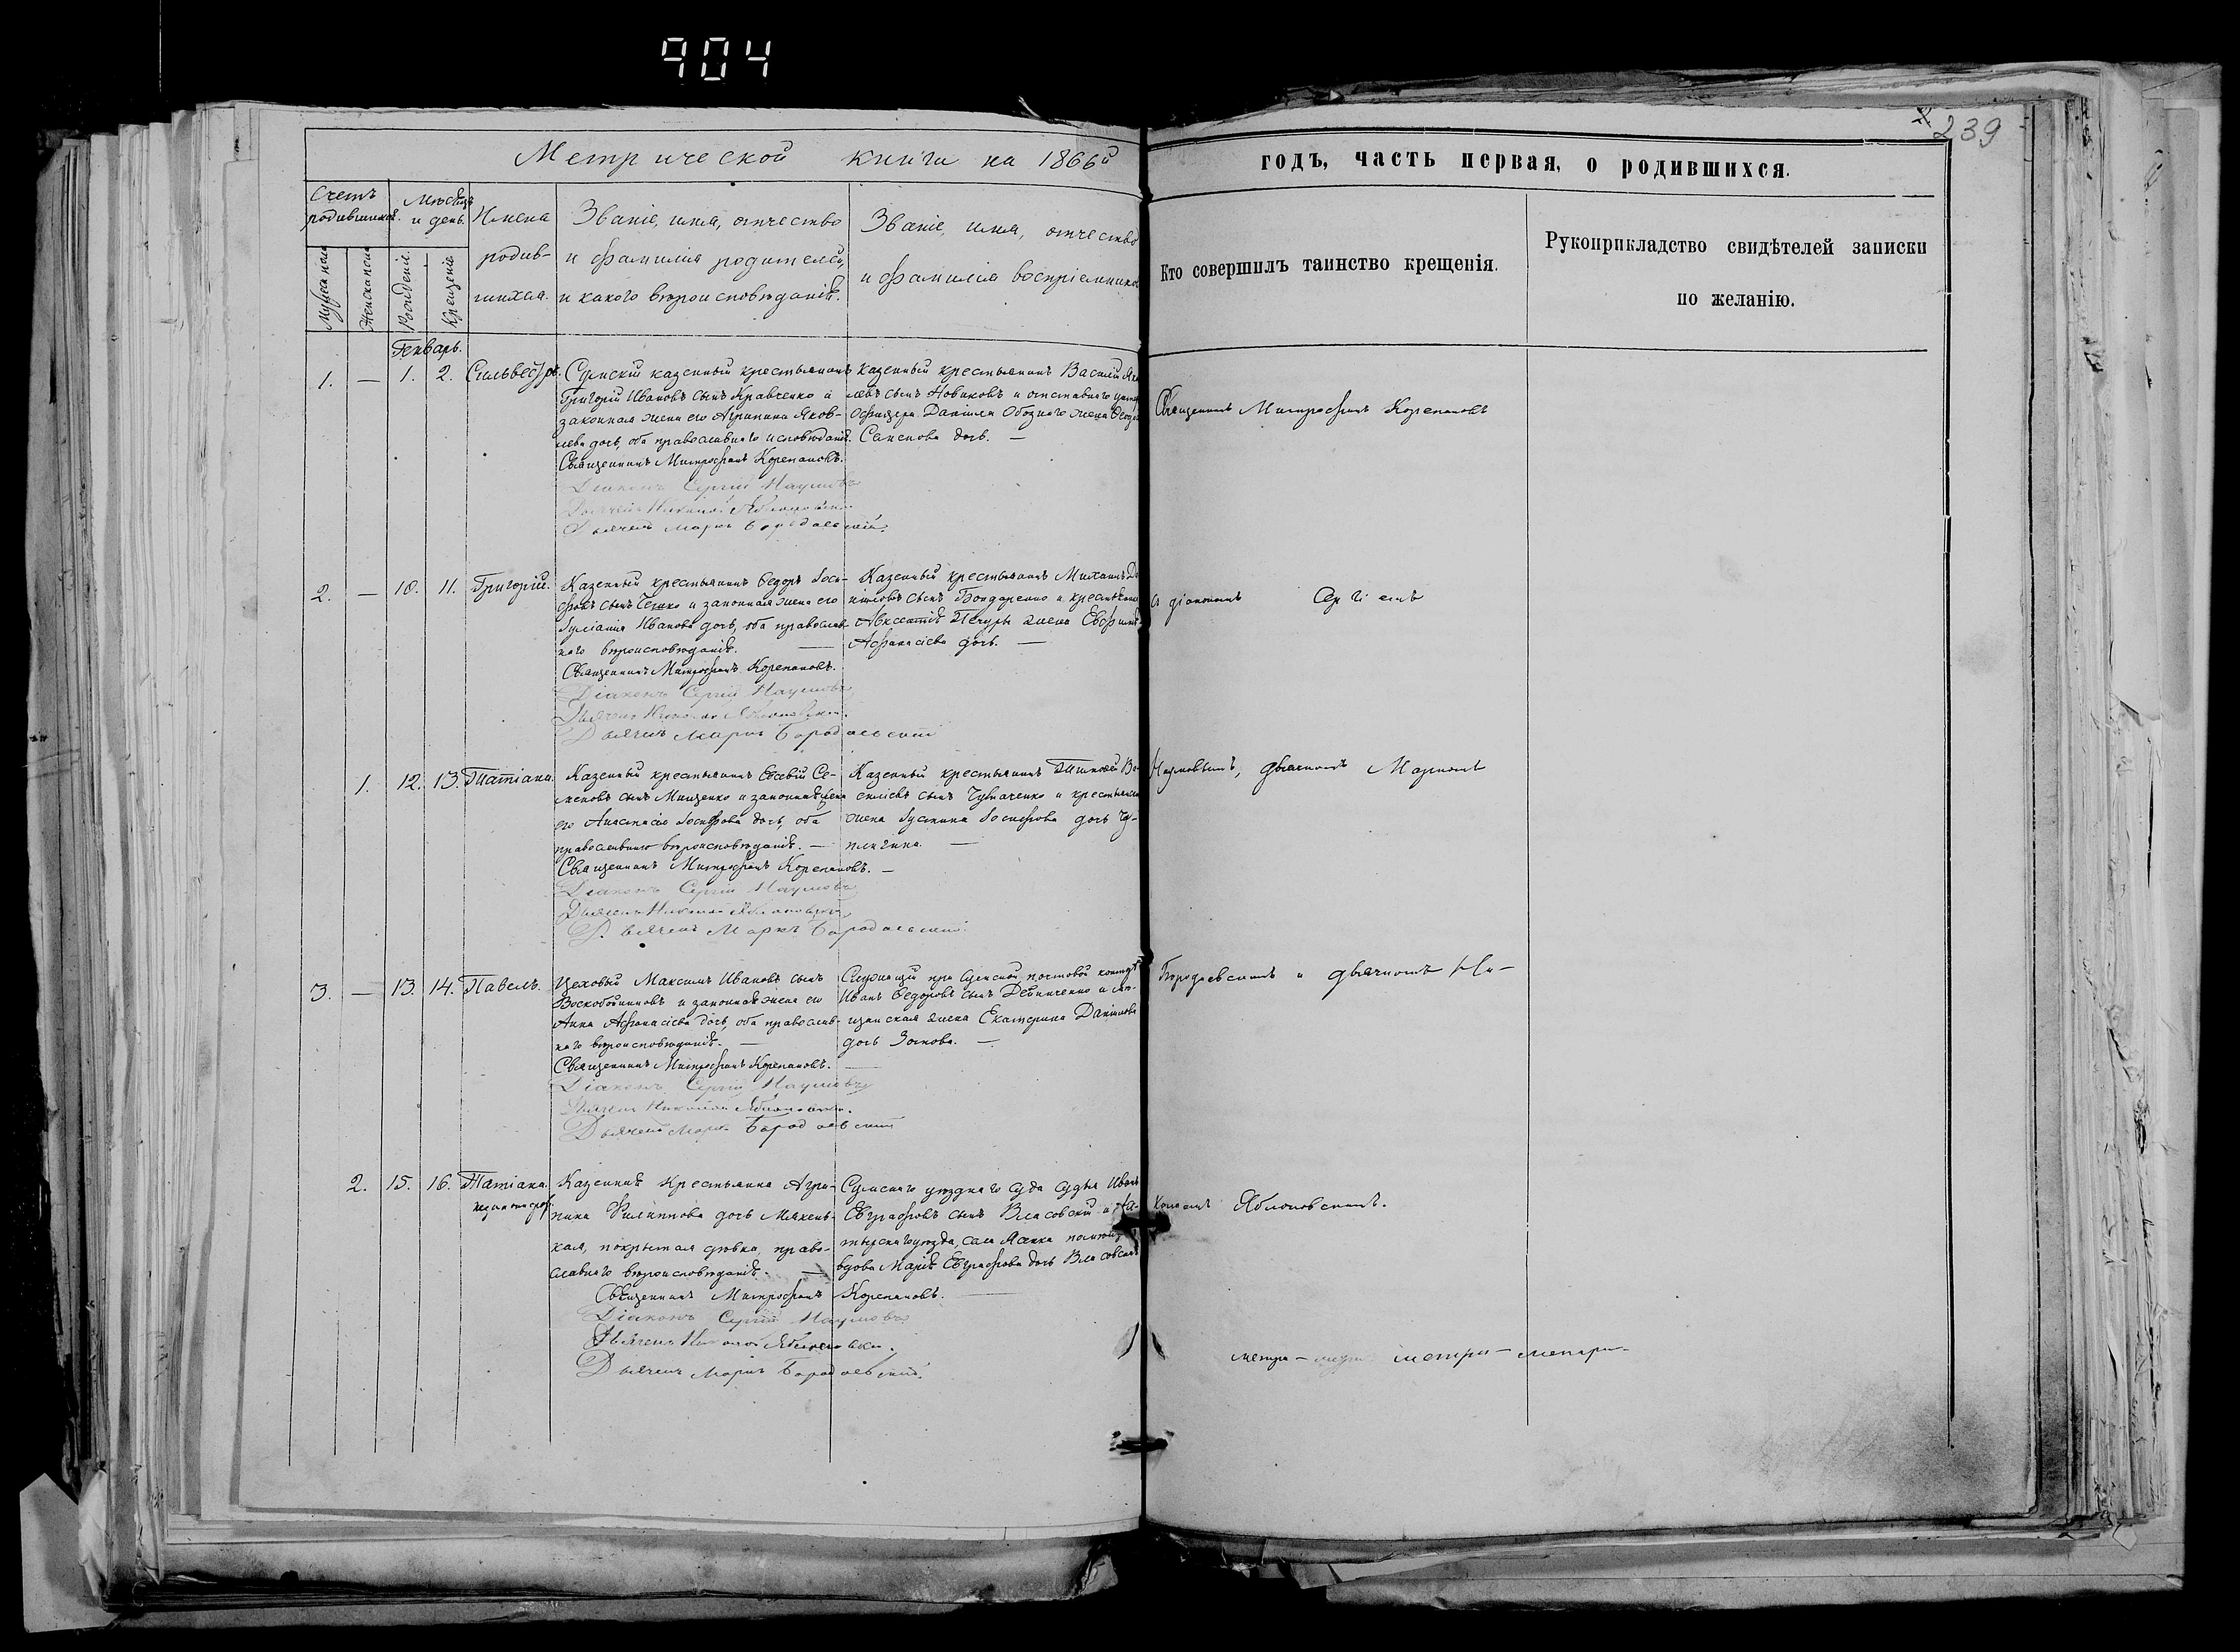 904
239
Метрической книги на 1866й
годъ, часть первая, о родившихся.
Счетъ родившихся.
Мужеска пола
Женска пола
Мѣсяцъ и день.
Рожденія.
Крещенія.
Имена
родив-
шихся.
Званіе, имя, отчество
и фамилія родителей,
и какого вѣроисповѣданія.
Званіе, имя, отчество
и фамилія воспріемниковъ
Кто совершилъ таинство крещенія.
Рукоприкладство свидѣтелей записки
по желанію.
Генварь.
1. — 1. 2. Сильвестръ.
Сумскій казенный крестьянинъ
Григорій Ивановъ сынъ Кравченко и
законная жена его Агрипина Яков-
лева дочь, оба православнаго исповѣданія.
Священникъ Митрофанъ Корепановъ.
Діаконъ Сергій Наумовъ
Дьячекъ Николай Яблоновскій
Дьячекъ Марк Бородаевскій.
казенный крестьянинъ Василій Яков
левъ сынъ Новиковъ и отставнаго унтер
Офицера Даніила Обознаго жена
Семенова дочь. —
Священникъ Митрофанъ Корепановъ
2. — 10. 11. Григорій.
Казенный крестьянинъ Ѳедоръ Іоси-
фовъ сынъ и законная жена его
Іуліанія Иванова дочь, оба православ-
наго вѣроисповѣданія. —
Священникъ Митрофанъ Корепановъ.
Діаконъ Сергій Наумовъ
Дьячекъ Николай Яблоновскій.
Дьячекъ Маркъ Бородаевскій
Казенный крестьянинъ Михаилъ Да
ниловъ сынъ Бондаренко и крестьянина
Авксентія Печуры жена
Афанасіева дочь. —
съ діакономъ Сергіемъ
1. 12. 13. Татіана.
Казенный крестьянинъ Евсевій Се-
меновъ сынъ Мищенко и законная жена
его Анастасія Іосифова дочь, оба
православнаго вѣроисповѣданія. —
Священникъ Митрофанъ Корепановъ. —
Діаконъ Сергій Наумовъ
Дьячекъ Николай Яблоновскій
Дьячекъ Маркъ Бородаевскій.
Казенный крестьянинъ Тимофей Ва-
силіевъ сынъ и крестьянская
жена Іустина Іосифова дочь
Наумовымъ, дьячкомъ Маркомъ
3. — 13. 14. Павелъ.
Цеховый Максимъ Ивановъ сынъ
Воскобойниковъ и законная жена его
Анна Афанасіева дочь, оба православ-
наго вѣроисповѣданія. —
Священникъ Митрофанъ Корепановъ. —
Діаконъ Сергій Наумовъ
Дьячекъ Николай Яблоновскій.
Дьячекъ Маркъ Бородаевскій
Служащій при Сумской почтовой конторѣ
Иванъ Ѳедоровъ сынъ Дейниченко и мѣ-
щанская жена Екатерина Даніилова
дочь Зоткова. —
Бородаевскимъ и дьячкомъ Ни-
2. 15. 16. Татіана.
Казенная крестьянка Агри-
пина Филиппова дочь
покрытая дѣвка, право-
славнаго вѣроисповѣданія. —
Священникъ Митрофанъ Корепановъ. —
Діаконъ Сергій Наумовъ
Дьячекъ Николай Яблоновскій.
Дьячекъ Маркъ Бородаевскій.
Сумскаго уѣзднаго суда судья Иванъ
Евграфовъ сынъ Власовскій и
уѣзда, села помѣщица
вдова Марія Евграфова дочь
колаемъ Яблоновскимъ.
метри — метри —